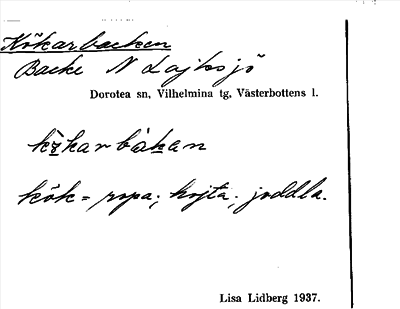 Kökarbacken
Backe N Lajksjö
Dorotea sn, Vilhelmina tg, Västerbottens l.
kö̀karbàkan
kök = ropa; hojta; joddla.
Lisa Lidberg 1937.